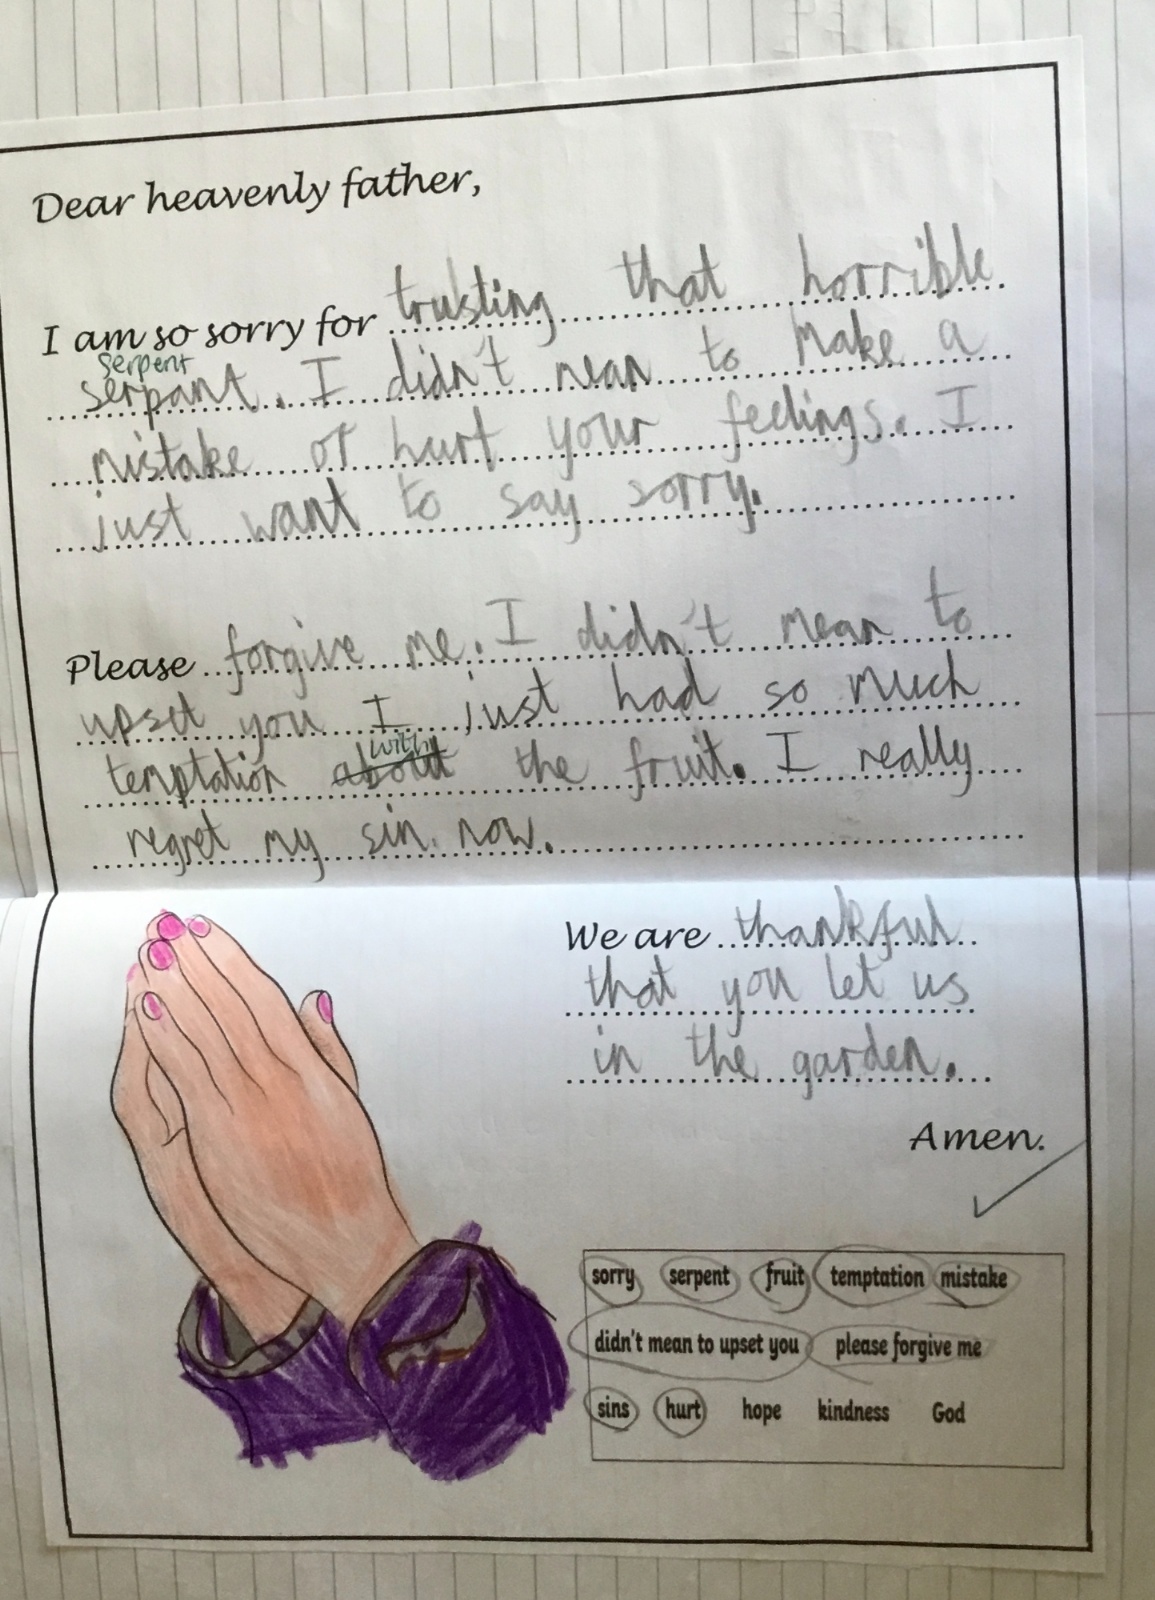 Dear heavenly father,
I am so sorry for trusting that horrible
serpent
serpant. I didn't mean to make a
mistake or hurt your feelings. I
just want to say sorry.
Please forgive me. I didn't mean to
upset you I just had so much
with
temptation about the fruit. I really
regret my sin now.
We are thankful
that you let us
in the garden.
Amen.
sorry serpent fruit temptation mistake
didn't mean to upset you please forgive me
sins hurt hope kindness God